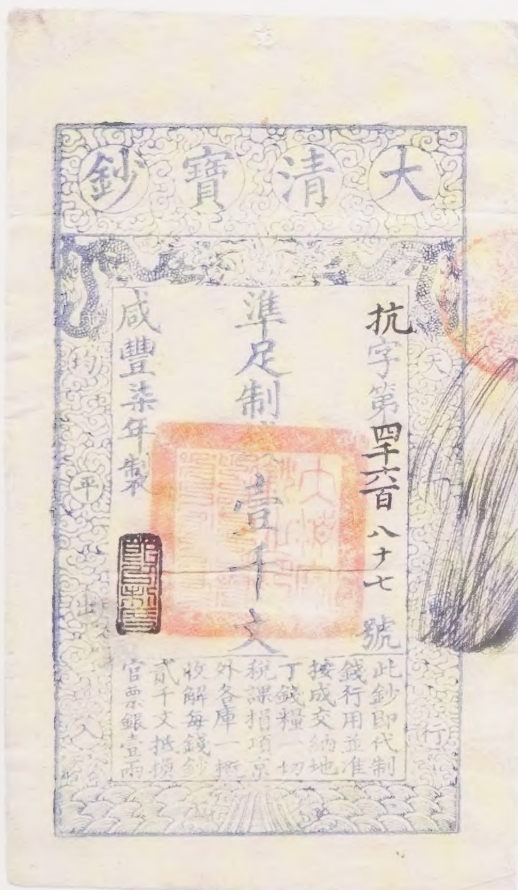 大清寶鈔
天行
抗字第四千六百八十七號
準足制錢壹千文
咸豐柒年製
均平出入
此鈔即代制
錢行用並准
按成交納地
丁錢糧一切
稅課捐項京
外各庫一概
收解每錢鈔
貳千文抵換
官票銀壹兩